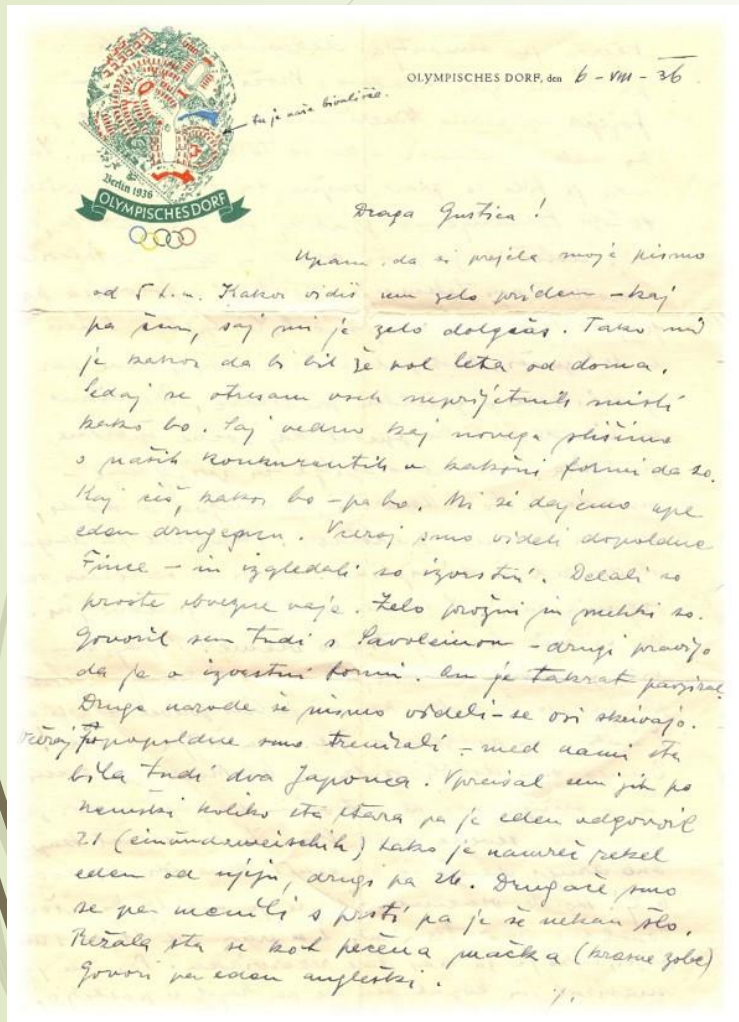 OLYMPISCHES DORF, den 6-VIII-36
tu je naše bivališče.
Berlin 1936
OLYMPISCHES DORF
Draga Gustica!
Upam, da si prejela moje pismo
od 5 t.m. Kakor vidiš sem zelo priden - kaj
pa čem, saj mi je zelo dolgčas. Tako mi
je kakor da bi bil že pol leta od doma.
Sedaj se otresam vseh neprijetnih misli
kako bo. Saj vedno kaj novega slišimo
o naših konkurentih v kakšni formi da so.
Kaj čiš, kakor bo - pa bo. Mi si dajemo upe
eden drugemu. Včeraj smo videli dopoldne
Fince - in izgledali so izvrstni. Delali so
proste obvezne vaje. Zelo prožni in mehki so.
Govoril sem tudi s Savolainom - drugi pravijo
da je v izvrstni formi. On je takrat
Druge narode še nismo videli - se vsi skrivajo.
včeraj popopoldne smo trenirali - med nami sta
bila tudi dva Japonca. Vprašal sem jih po
nemški koliko sta stara pa je eden odgovoril
21 (einundzweischih) tako je namreč rekel
eden od njiju, drugi pa 26. Drugače smo
se pa menili s prsti pa je še nekam šlo.
Režala sta se kot pečena mačka (krasne zobe)
Govori pa eden angleški.
./.